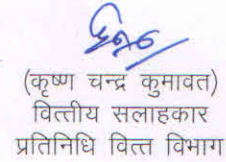 (कृष्ण चन्द्र कुमावत)
वित्तीय सलाहकार
प्रतिनिधि वित्त विभाग